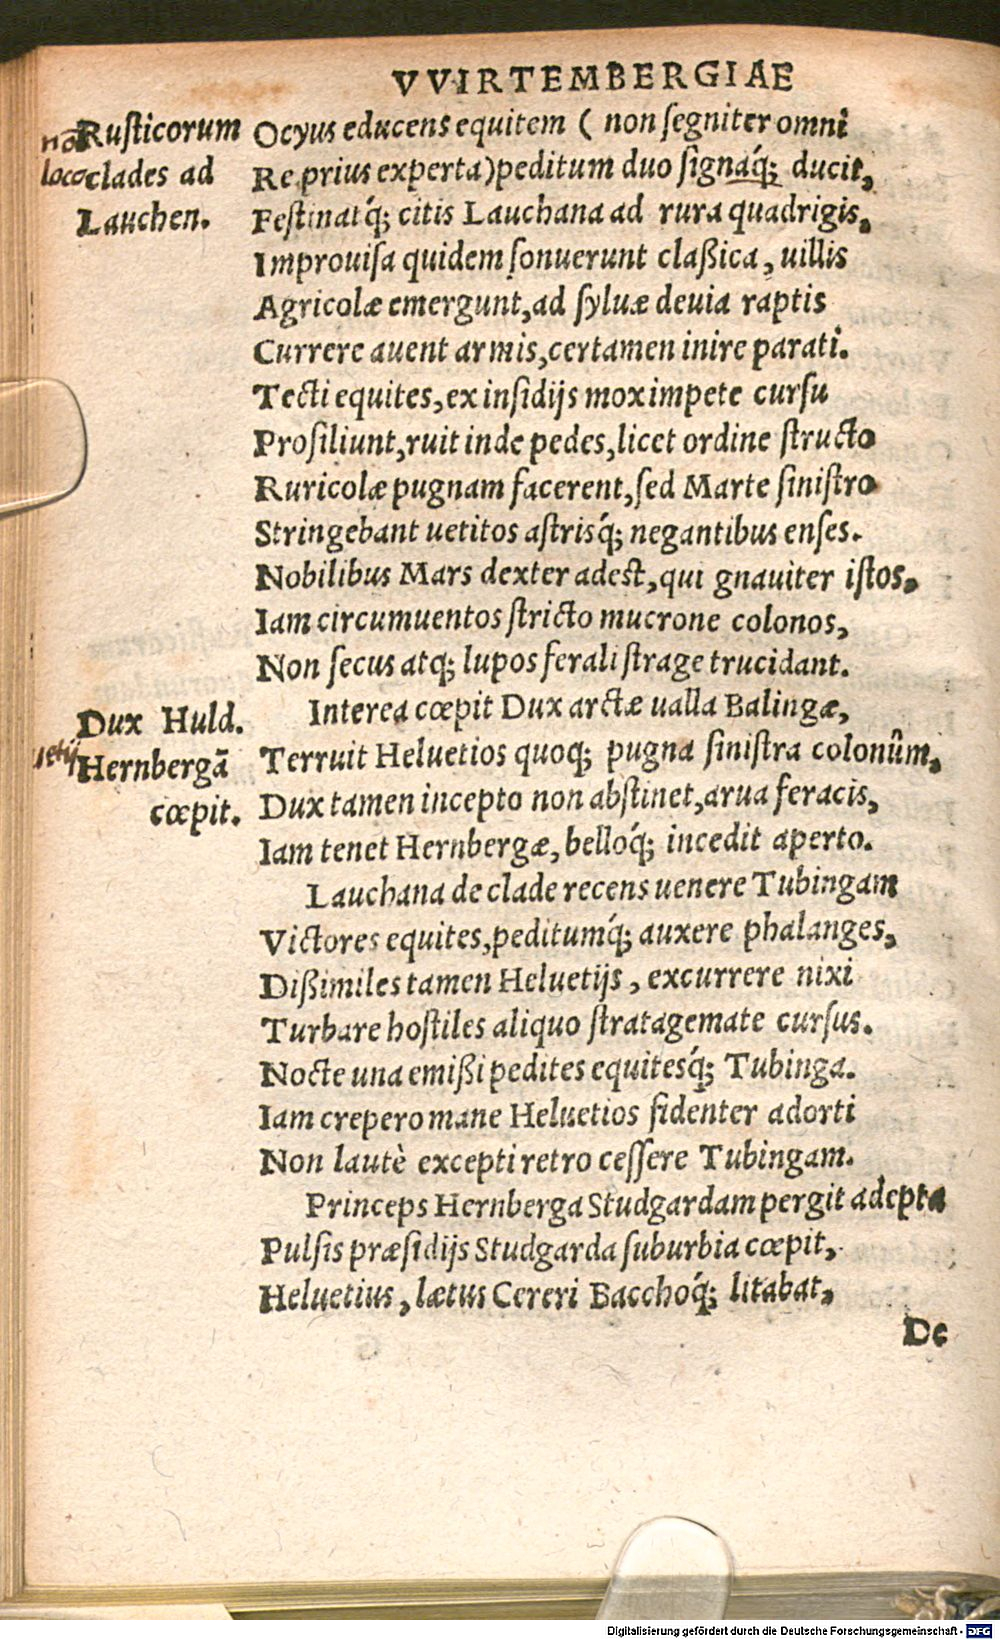 VVIRTEMBERGIAE
Rusticorum
clades ad
Lauchen.
Ocyus educens equitem ( non segniter omni
Re prius experta) peditum duo signaq́; ducit,
Festinatq́; citis Lauchana ad rura quadrigis,
Improuisa quidem sonuerunt claßica, uillis
Agricolæ emergunt, ad syluæ deuia raptis
Currere auent armis, certamen inire parati.
Tecti equites, ex insidijs mox impete cursu
Prosiliunt, ruit inde pedes, licet ordine structo
Ruricolæ pugnam facerent, sed Marte sinistro
Stringebant uetitos astrisq́; negantibus enses.
Nobilibus Mars dexter adest, qui gnauiter istos,
Iam circumuentos stricto mucrone colonos,
Non secus atq; lupos ferali strage trucidant.
Dux Huld.
Hernbergā
cœpit.
Interea cœpit Dux arctæ ualla Balingæ,
Terruit Heluetios quoq; pugna sinistra colonûm,
Dux tamen incepto non abstinet, arua feracis,
Iam tenet Hernbergæ, belloq́; incedit aperto.
Lauchana de clade recens uenere Tubingam
Victores equites, peditumq́; auxere phalanges,
Dißimiles tamen Heluetijs, excurrere nixi
Turbare hostiles aliquo stratagemate cursus.
Nocte una emißi pedites equitesq́; Tubinga.
Iam crepero mane Heluetios fidenter adorti
Non lautè excepti retro cessere Tubingam.
Princeps Hernberga Studgardam pergit adepta
Pulsis præsidijs Studgarda suburbia cœpit,
Heluetius, lætus Cereri Bacchoq́; litabat,
De
Digitalisierung gefördert durch die Deutsche Forschungsgemeinschaft - DFG